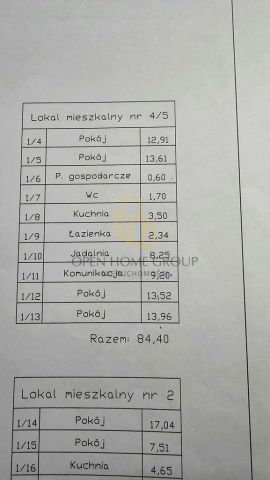 Lokal mieszkalny nr 4/5
1/4 Pokój 12,91
1/5 Pokój 13,61
1/6 P. gospodarcze 0,60
1/7 Wc 1,70
1/8 Kuchnia 3,50
1/9 Łazienka 2,34
1/10 Jadalnia 8,25
1/11 Komunikacja 7,20
OPEN HOME GROUP
NIERUCHOMOŚCI
1/12 Pokój 13,52
1/13 Pokój 13,96
Razem: 84,40
Lokal mieszkalny nr 2
1/14 Pokój 17,04
1/15 Pokój 7,51
1/16 Kuchnia 4,65